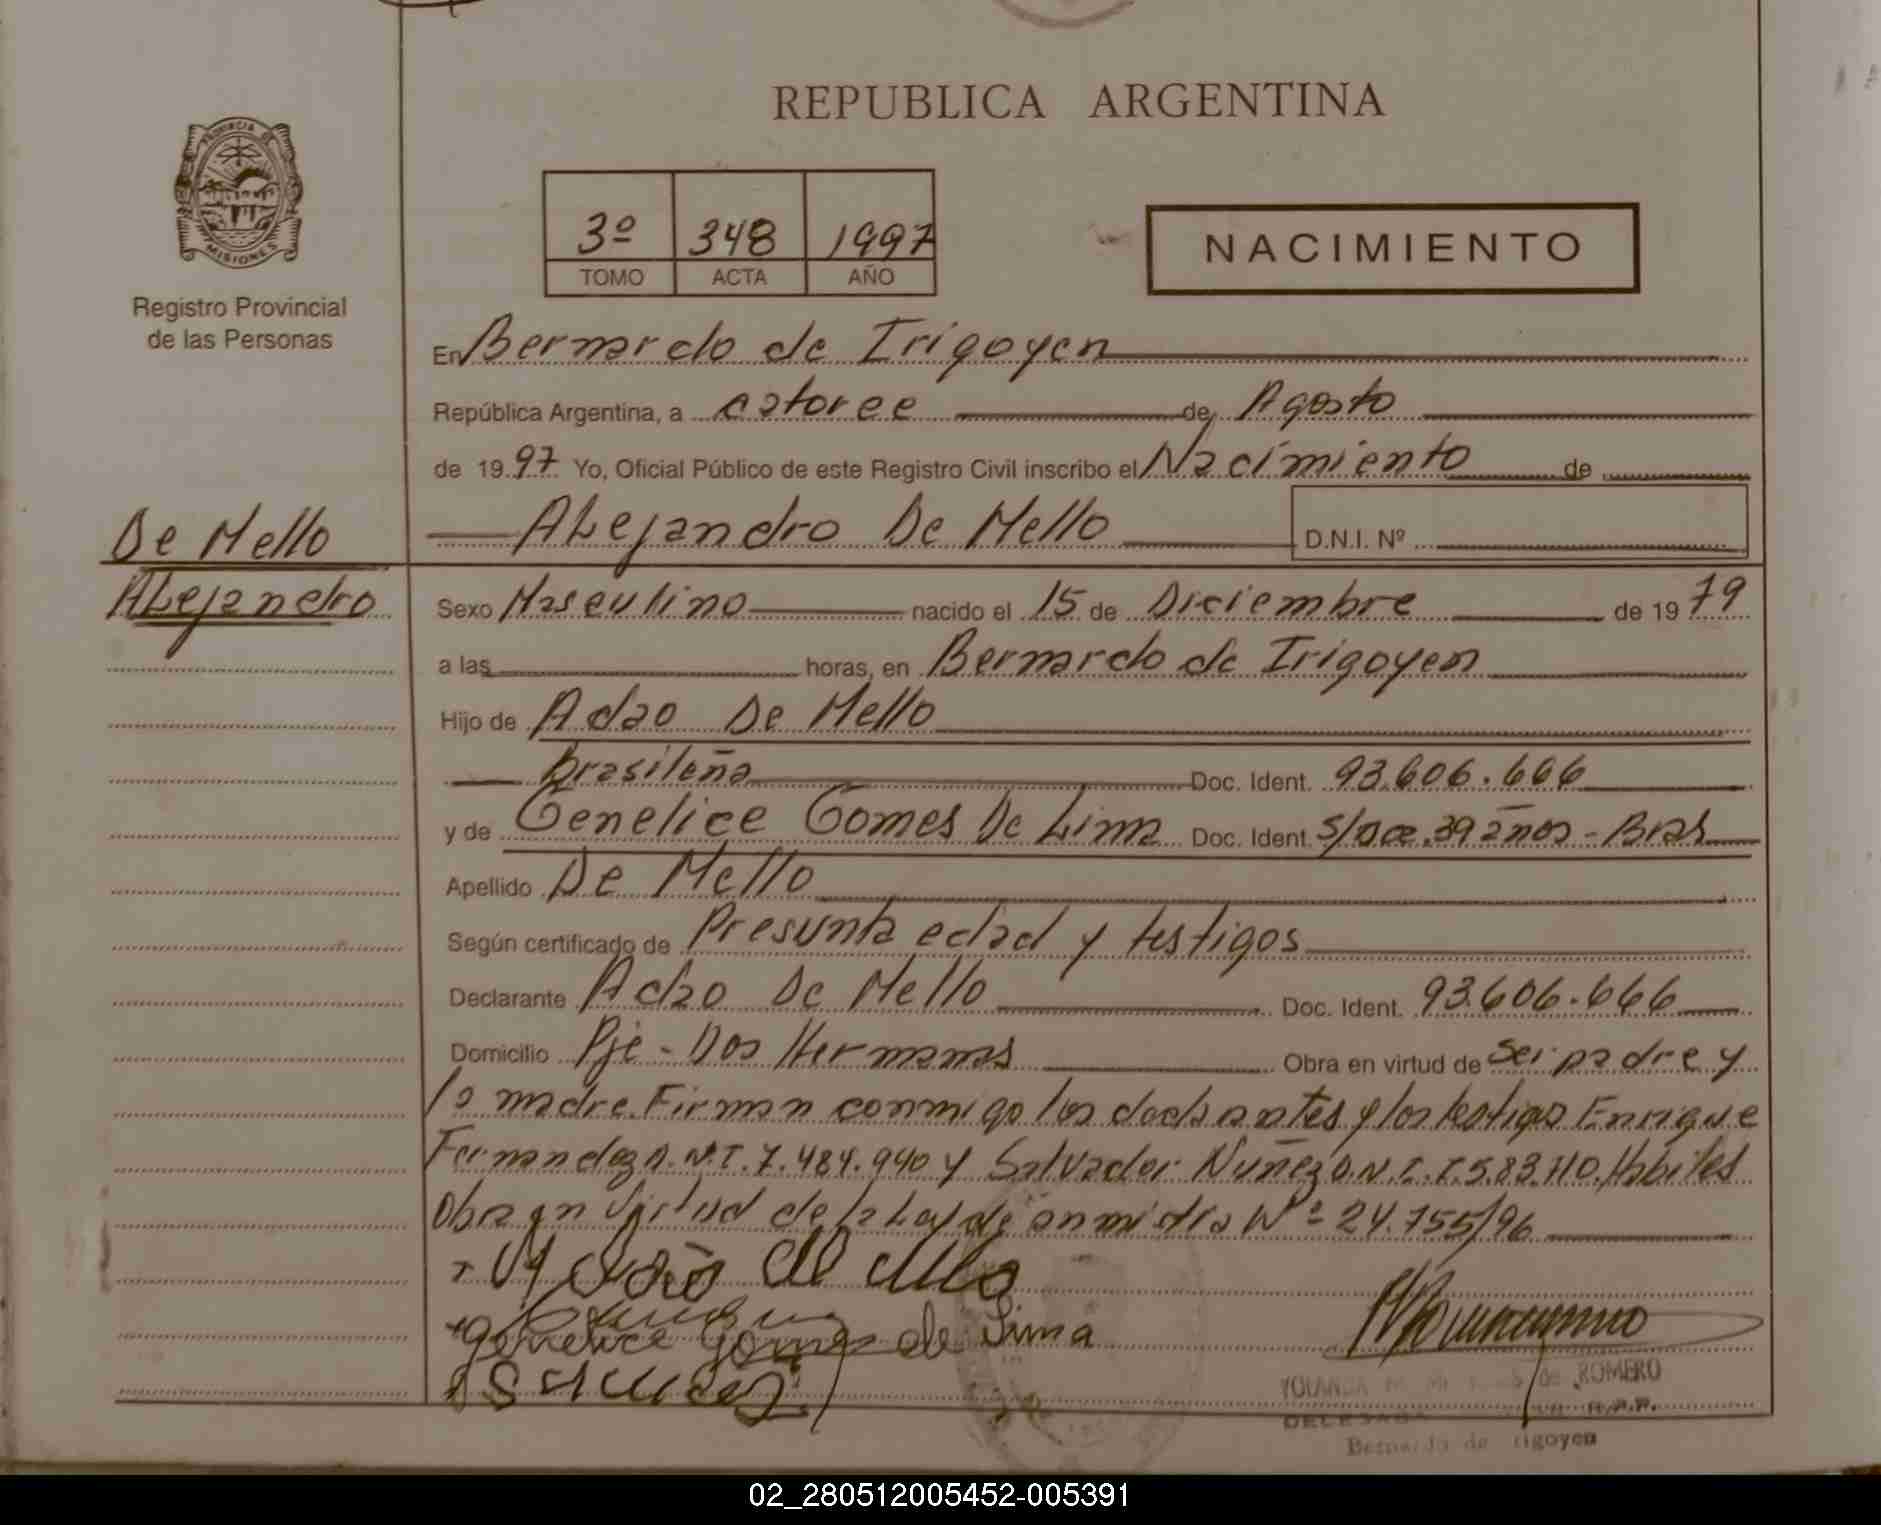 REPUBLICA ARGENTINA
PROVINCIA DE MISIONES
Registro Provincial
de las Personas
3º 348 1997
TOMO ACTA AÑO
NACIMIENTO
En Bernardo de Irigoyen
República Argentina, a catorce de Agosto
de 1997 Yo, Oficial Público de este Registro Civil inscribo el Nacimiento de
Alejandro De Mello D.N.I. Nº
De Mello
Alejandro
Sexo Masculino nacido el 15 de Diciembre de 1979
a las horas, en Bernardo de Irigoyen
Hijo de Adao De Mello
Brasileña Doc. Ident. 93.606.666
y de Genelice Gomes De Lima Doc. Ident. S/Doc. 39 años - Bras
Apellido De Mello
Según certificado de Presunta edad y testigos
Declarante Adao De Mello Doc. Ident. 93.606.666
Domicilio Pje - Dos Hermanas Obra en virtud de Ser padre y
la madre. Firman conmigo los declarantes y los testigos Enrique
Fernandez D.N.I. 7.484.940 y Salvador Nuñez D.N.I. Habiles
Obra en Virtud de la Ley de amnistia Nº 24.755/96
Adão de Mello
Genelice Gomes de Lima
YOLANDA de ROMERO
DELEGADA R.P.P.
Bernardo de Irigoyen
02_280512005452-005391